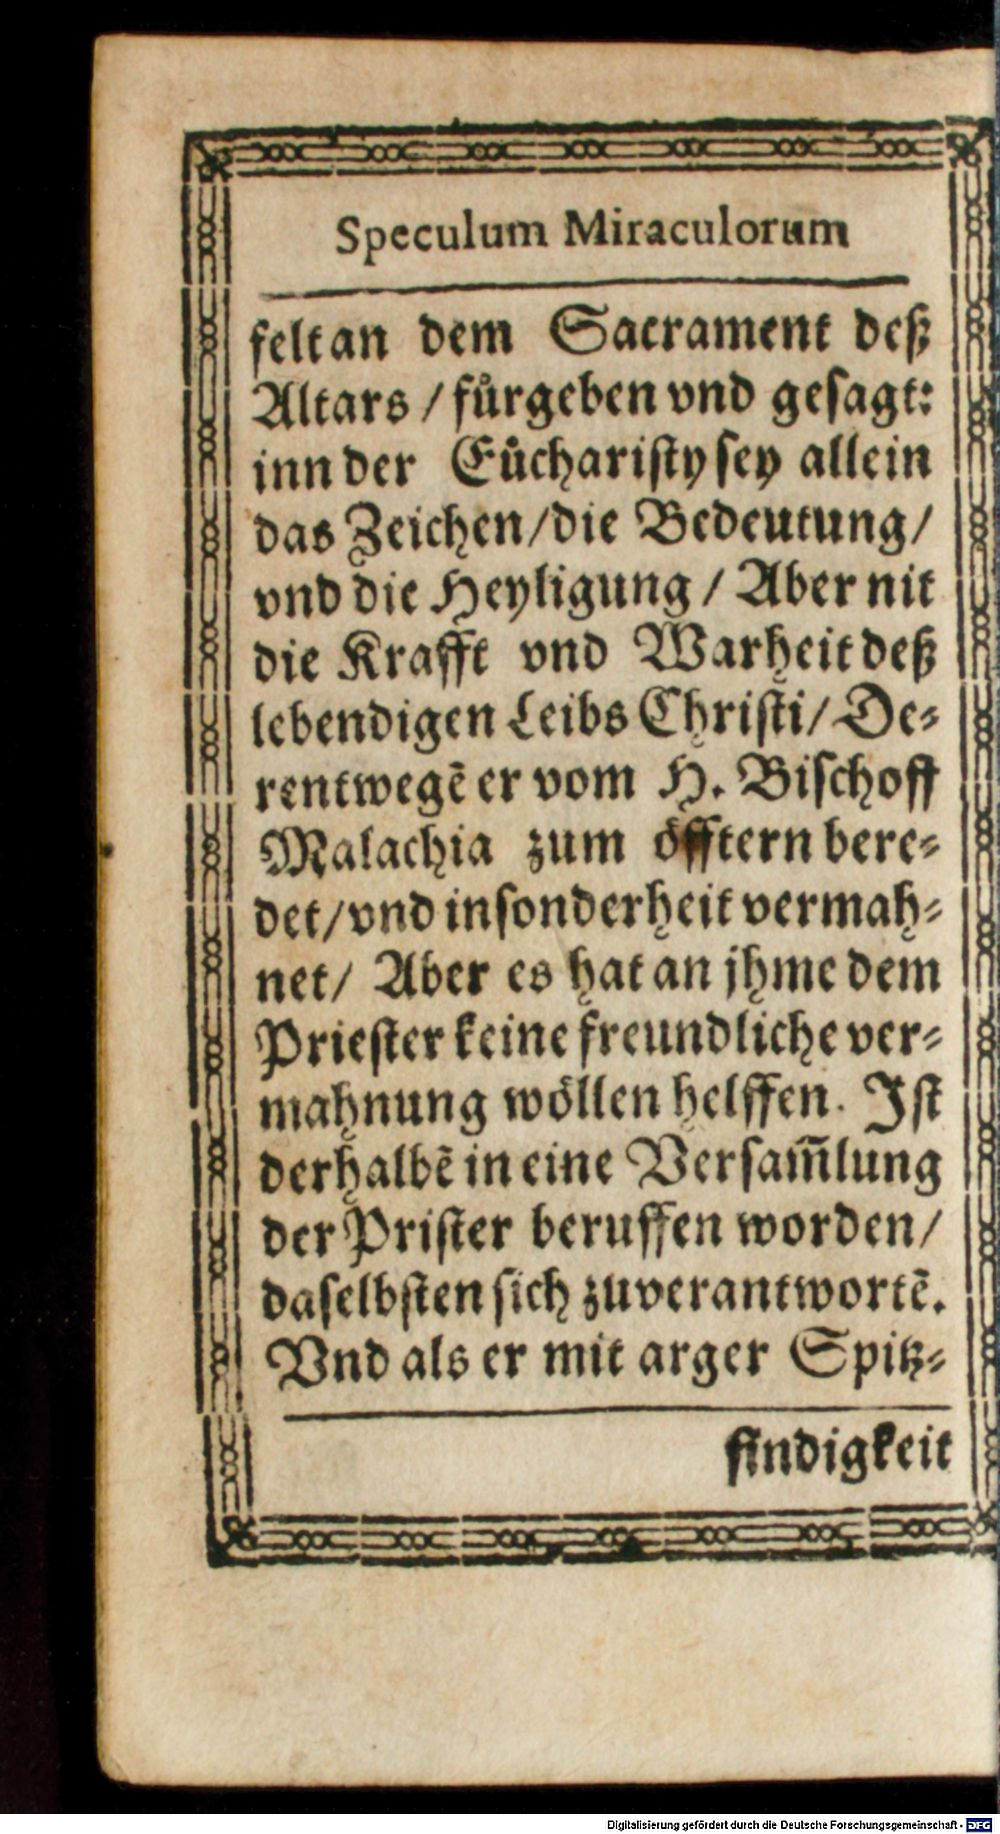 Speculum Miraculorum
felt an dem Sacrament deß
Altars / fuͤrgeben vnd gesagt:
inn der Euͤcharisty sey allein
das Zeichen/die Bedeutung/
vnd die Heyligung / Aber nit
die Krafft vnd Warheit deß
lebendigen Leibs Christi/ De-
rentwegẽ er vom H. Bischoff
Malachia zum oͤfftern bere-
det/vnd insonderheit vermah-
net/ Aber es hat an jhme dem
Priester keine freundliche ver-
mahnung woͤllen helffen. Ist
derhalbẽ in eine Versam̃lung
der Prister beruffen worden/
daselbsten sich zuverantwortẽ.
Vnd als er mit arger Spitz-
findigkeit
Digitalisierung gefördert durch die Deutsche Forschungsgemeinschaft - DFG